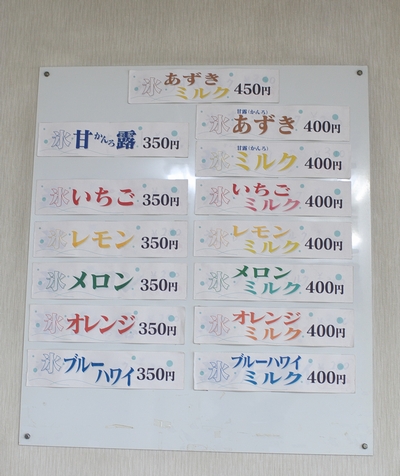 氷 あずき
ミルク 450円
氷 甘かんろ露 350円
氷 いちご 350円
氷 レモン 350円
氷 メロン 350円
氷 オレンジ 350円
氷 ブルー
ハワイ 350円
甘露(かんろ)
氷 あずき 400円
甘露(かんろ)
氷 ミルク 400円
氷 いちご
ミルク 400円
氷 レモン
ミルク 400円
氷 メロン
ミルク 400円
氷 オレンジ
ミルク 400円
氷 ブルーハワイ
ミルク 400円